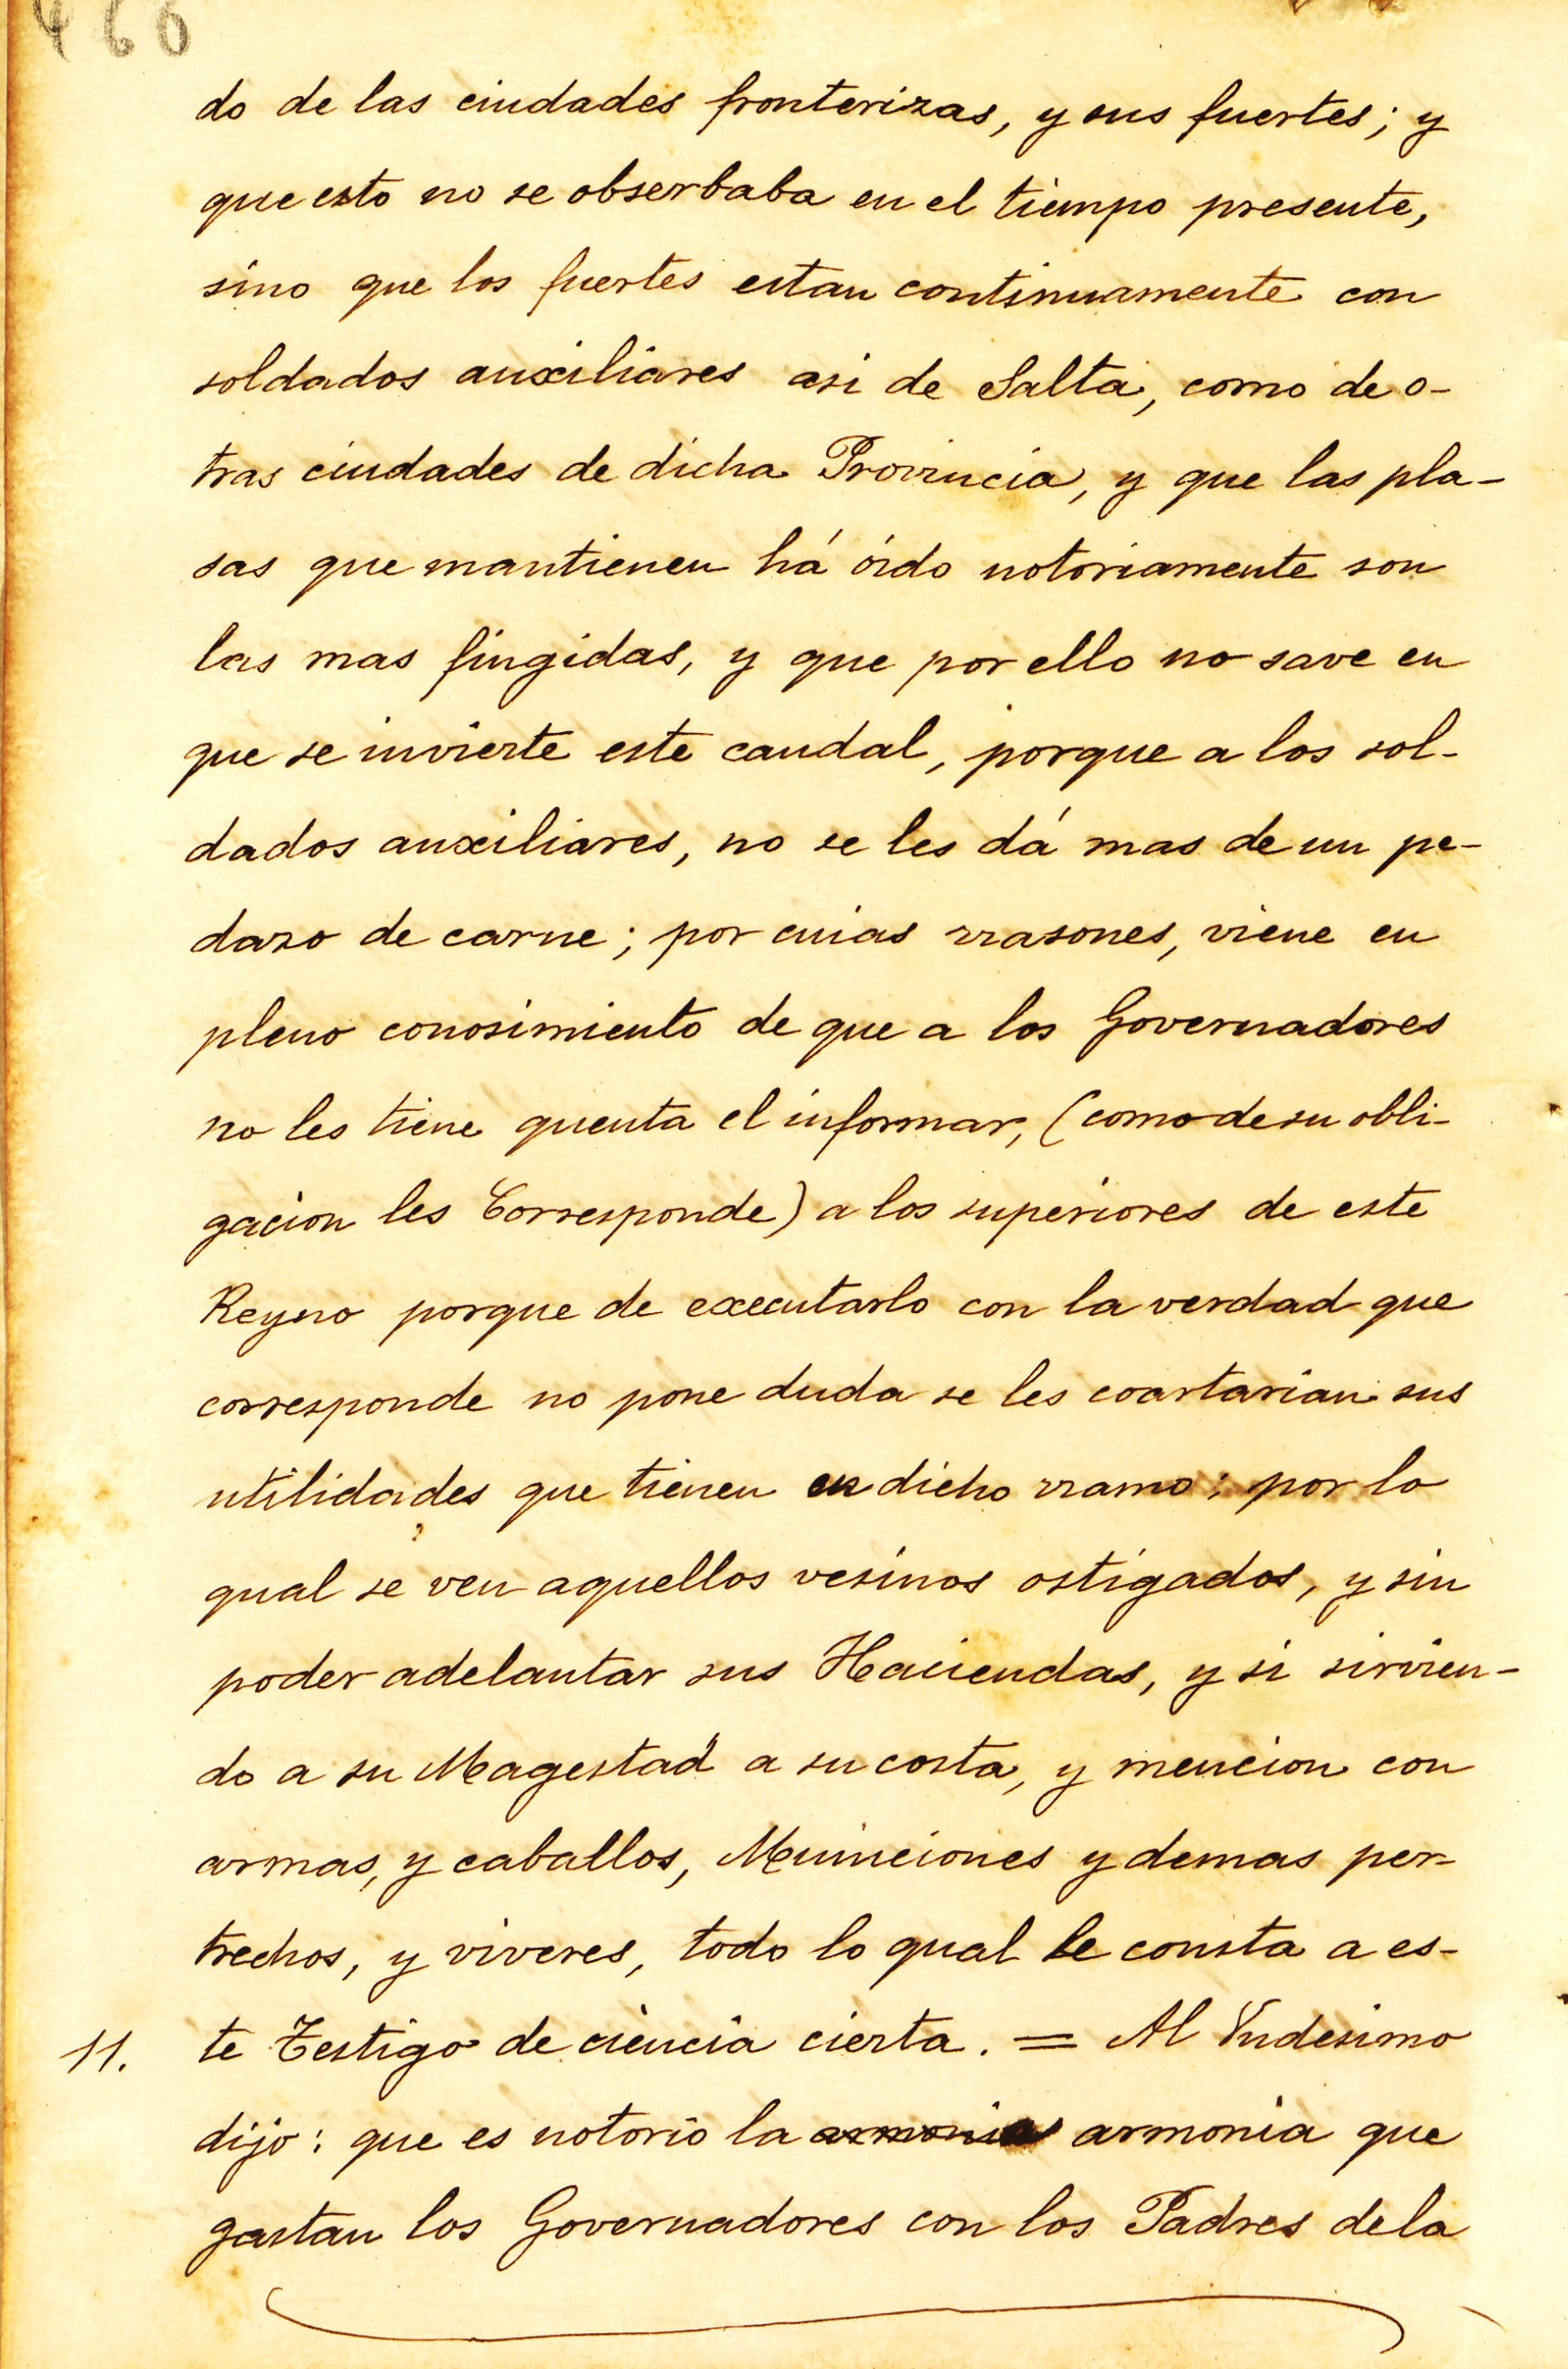 466
do de las ciudades fronterizas, y sus fuertes; y
que esto no se obserbaba en el tiempo presente,
sino que los fuertes estan continuamente con
soldados auxiliares asi de Salta, como de o-
tras ciudades de dicha Provincia, y que las pla-
sas que mantienen há óido notoriamente son
las mas fingidas, y que por ello no save en
que se invierte este caudal, porque a los sol-
dados auxiliares, no se les dá mas de un pe-
dazo de carne; por cuias rrasones, viene en
pleno conosimiento de que a los Governadores
no les tiene quenta el informar, (como de su obli-
gacion les Corresponde) a los superiores de este
Reyno porque de executarlo con la verdad que
corresponde no pone duda se les coartarian sus
utilidades que tienen en dicho rramo; por lo
qual se ven aquellos vesinos ostigados, y sin
poder adelantar sus Haciendas, y si sirvien-
do a su Magestad a su costa, y mencion con
armas, y caballos, Municiones y demas per-
trechos, y viveres, todo lo qual le consta a es-
11. te Testigo de ciencia cierta. = Al Vndesimo
dijo: que es notorio la armonia armonia que
gastan los Governadores con los Padres de la